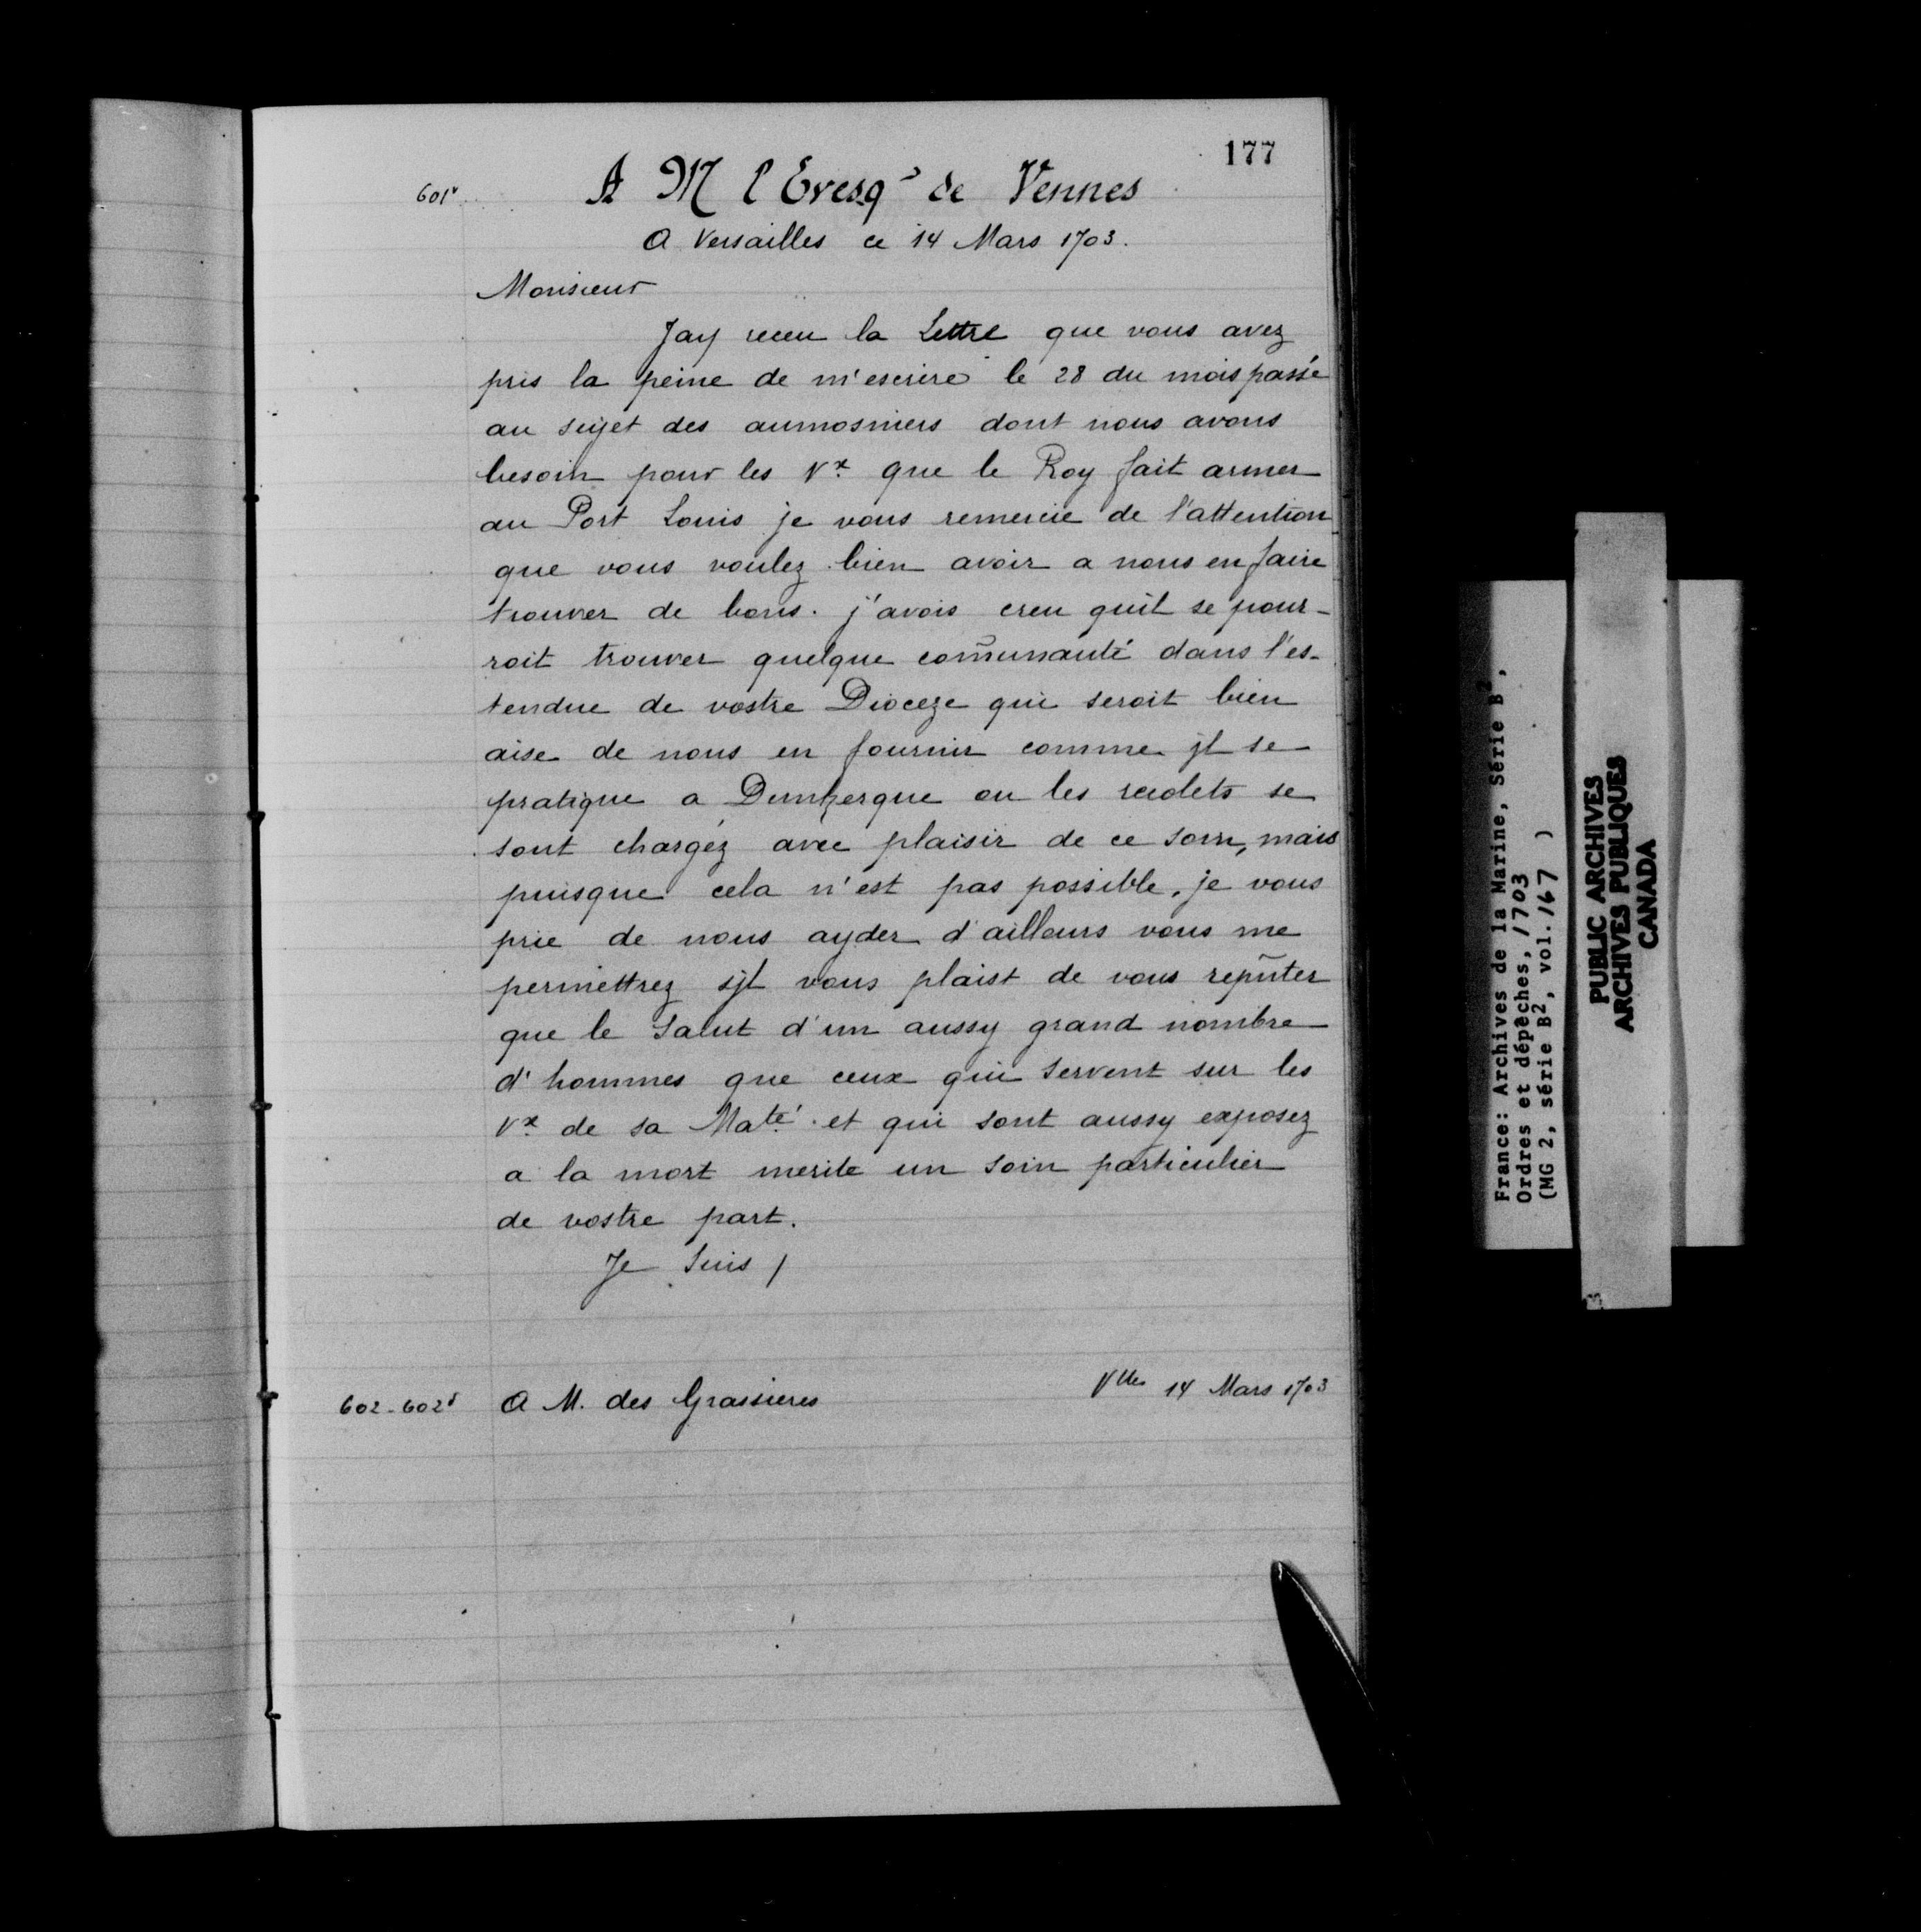 177
601v
A M l'Evesq^e de Vennes
A Versailles ce 14 Mars 1703.
Monsieur
Jay receu la Lettre que vous avez
pris la peine de m'escrire le 28 du mois passé
au sujet des aumosniers dont nous avons
besoin pour les Vx que le Roy fait armer
au Port Louis je vous remercie de l'attention
que vous voulez bien avoir a nous en faire
trouver de bons. j'avois creu qu'il se pour-
roit trouver quelque com̃unauté dans l'es-
tendue de vostre Dioceze qui seroit bien
aise de nous en fournir comme jl se
pratique a Dunkerque ou les se
sont chargéz avec plaisir de ce soin, mais
puisque cela n'est pas possible, je vous
prie de nous ayder d'ailleurs vous me
permettrez sjl vous plaist de vous rep̃nter
que le salut d'un aussy grand nombre
d'hommes que ceux qui servent sur les
Vx de sa Maté. et qui sont aussy exposez
a la mort merite un soin particulier
de vostre part.
Je suis /
602-602v A M. des Grassieres Vlles 14 Mars 1703
France: Archives de la Marine, Série B2,
Ordres et dépêches, 1703
(MG 2, série B2, vol. 167 )
PUBLIC ARCHIVES
ARCHIVES PUBLIQUES
CANADA